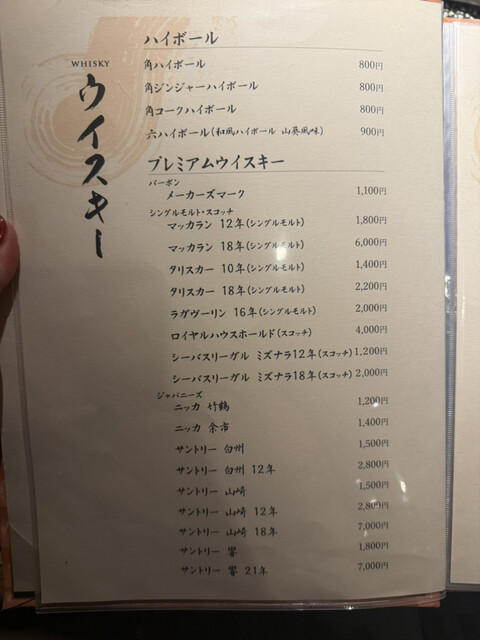 WHISKY
ウイスキー
ハイボール
角ハイボール 800円
角ジンジャーハイボール 800円
角コークハイボール 800円
六ハイボール(和風ハイボール 山葵風味) 900円
プレミアムウイスキー
バーボン
メーカーズマーク 1,100円
シングルモルト・スコッチ
マッカラン 12年(シングルモルト) 1,800円
マッカラン 18年(シングルモルト) 6,000円
タリスカー 10年(シングルモルト) 1,400円
タリスカー 18年(シングルモルト) 2,200円
ラグヴーリン 16年(シングルモルト) 2,000円
ロイヤルハウスホールド(スコッチ) 4,000円
シーバスリーグル ミズナラ12年(スコッチ) 1,200円
シーバスリーグル ミズナラ18年(スコッチ) 2,000円
ジャパニーズ
ニッカ 竹鶴 1,200円
ニッカ 余市 1,400円
サントリー 白州 1,500円
サントリー 白州 12年 2,800円
サントリー 山崎 1,500円
サントリー 山崎 12年 2,800円
サントリー 山崎 18年 7,000円
サントリー 響 1,800円
サントリー 響 21年 7,000円